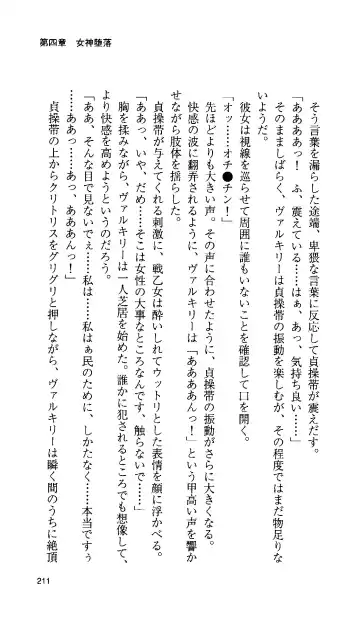 第四章　女神堕落
そう言葉を漏らした途端、卑猥な言葉に反応して貞操帯が震えだす。
「ああああっ！　ふ、震えている……はぁ、あっ、気持ち良い……」
そのまましばらく、ヴァルキリーは貞操帯の振動を楽しむが、その程度ではまだ物足りな
いようだ。
彼女は視線を巡らせて周囲に誰もいないことを確認して口を開く。
「オッ……オチ●チン！」
先ほどよりも大きい声。その声に合わせたように、貞操帯の振動がさらに大きくなる。
快感の波に翻弄されるように、ヴァルキリーは「ああああんっ！」という甲高い声を響か
せながら肢体を揺らした。
貞操帯が与えてくれる刺激に、戦乙女は酔いしれてウットリとした表情を顔に浮かべる。
「ああっ、いや、だめ……そこは女性の大事なところなんです、触らないで……」
胸を揉みながら、ヴァルキリーは一人芝居を始めた。誰かに犯されるところでも想像して、
より快感を高めようというのだろう。
「ああ、そんな目で見ないでぇ……私は……私はぁ民のために、しかたなく……本当ですぅ
……ああっ……あっ、あああんっ！」
貞操帯の上からクリトリスをグリグリと押しながら、ヴァルキリーは瞬く間のうちに絶頂
211